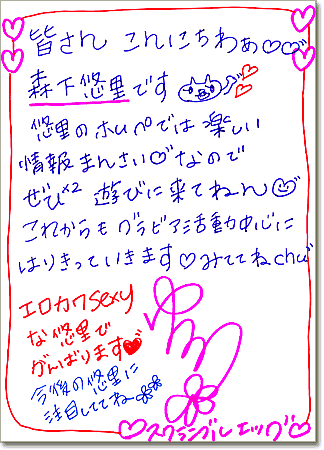 皆さん こんにちわぁ♡♡
森下悠里です
悠里のホムペでは楽しい
情報まんさい♡なので
ぜひ×2 遊びに来てねん
これからもグラビア活動中心に
はりきっていきます♡みててねchu♡
エロカワsexy
な悠里で
がんばります♥
今後の悠里に
注目しててね
ゆうり
♡スクランブルエッグ♡